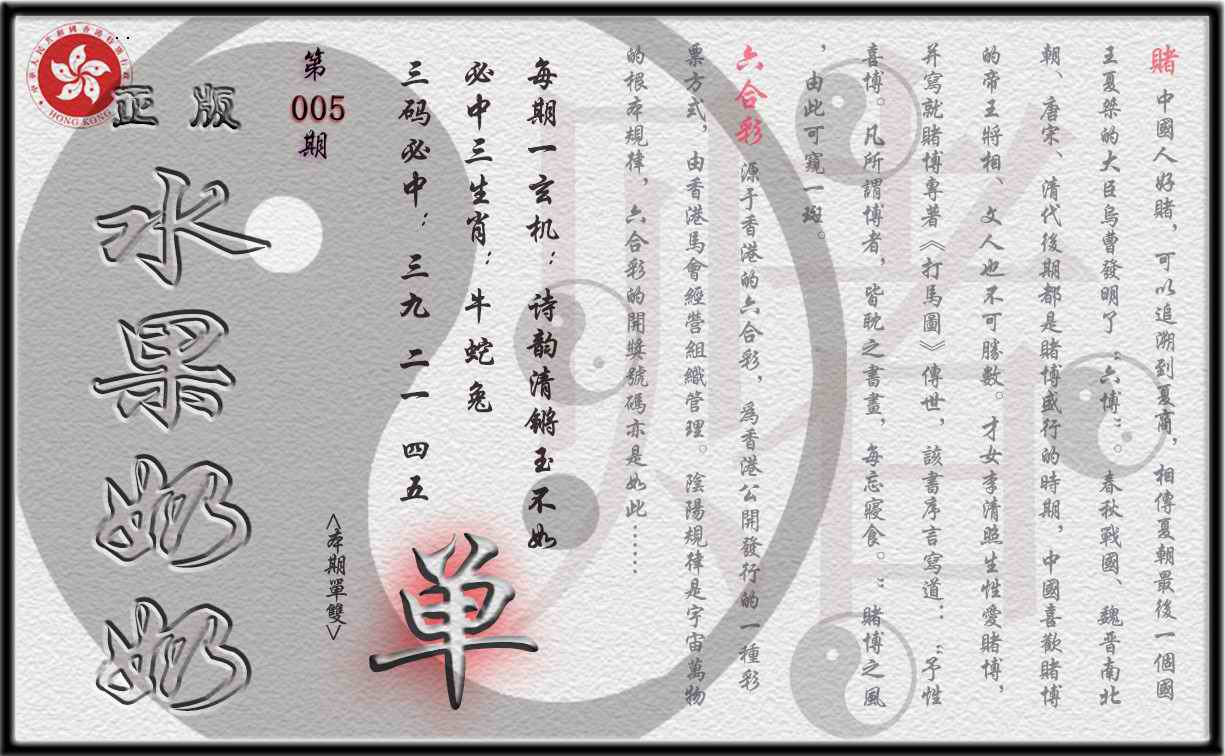 賭 中國人好賭，可以追溯到夏商，相傳夏朝最後一個國
王夏桀的大臣烏曹發明了“六博”。春秋戰國、魏晋南北
朝、唐宋、清代後期都是賭博盛行的時期，中國喜歡賭博
的帝王將相、文人也不可勝數。才女李清照生性愛賭博，
并寫就賭博專著《打馬圖》傳世，該書序言寫道：“予性
喜博。凡所謂博者，皆耽之書晝，每忘寢食。”賭博之風
，由此可窺一斑。
六合彩 源于香港的六合彩，爲香港公開發行的一種彩
票方式，由香港馬會經營組織管理。陰陽規律是宇宙萬物
的根本規律，六合彩的開獎號碼亦是如此……
每期一玄机：诗韵清锵玉不如
必中三生肖：牛蛇兔
三码必中：三九 二一 四五
单
<本期單雙>
第
005
期
正版
水果奶奶
中華人民共和國香港特別行政區
HONG KONG
賭